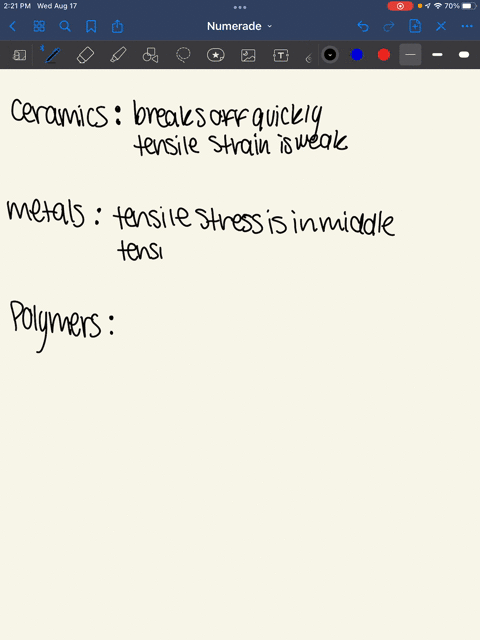 2:21 PM Wed Aug 17
70%
Numerade
T
Ceramics: breaks off quickly
tensile strain is weak
metals: tensile stress is in middle
tensi
Polymers: